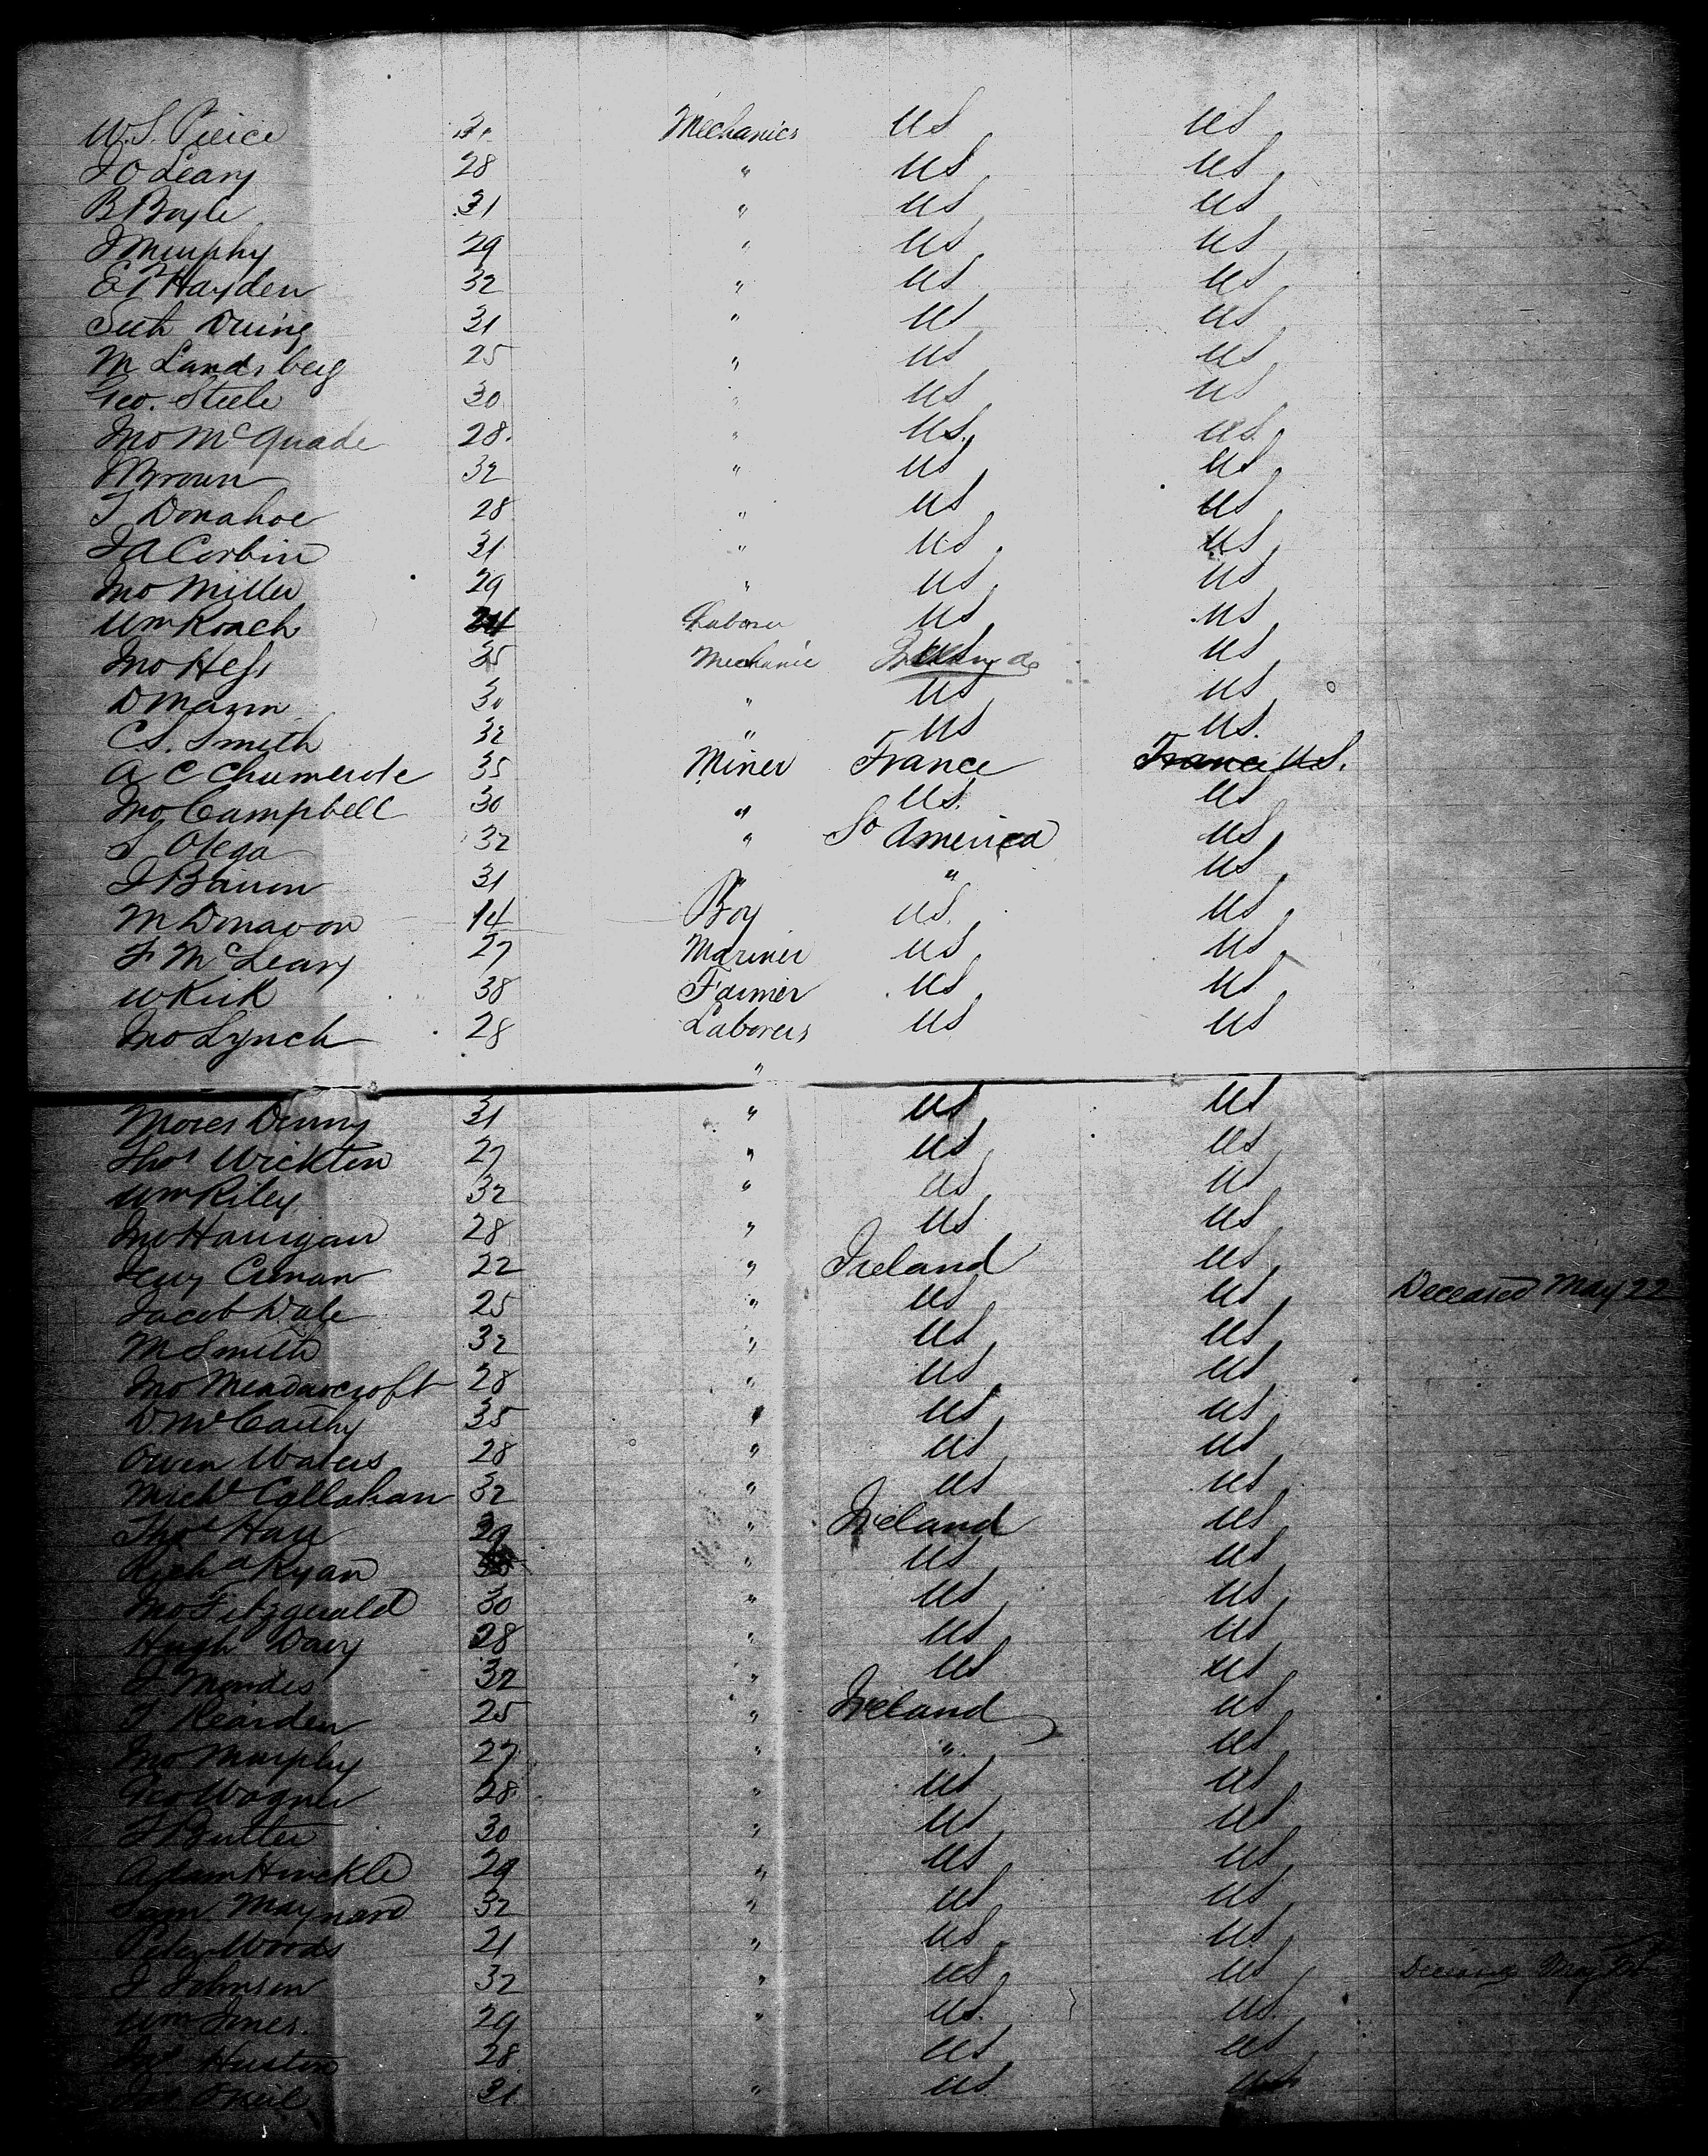 W. S. Peirce 31 Mechanics US US
J O Leary 28 " US US
B Boyle 31 " US US
J Murphy 29 " US US
E T Hayden 32 " US US
Seth 31 " US US
M Landsberg 25 " US US
Geo. Steele 30 " US US
Jno McQuade 28 " US US
J Brown 32 " US US
T Donahoe 28 " US US
J A Corbin 31 " US US
Jno Miller 29 " US US
Wm Roach Laborer US US
Jno Hess 35 Mechanic US
D Mann 30 " US US
C S. Smith 32 " US US
A C Chumerote 35 Miner France France US.
Jno Campbell 30 " US US
S Otega 32 " So America US
J Barron 31 " " US
M Donavon 14 Boy US US
F McLeary 27 Mariner US US
W Kirk 38 Farmer US US
Jno Lynch 28 Laborers US US
"
Moses Denny 31 " US US
Thos Wickten 27 " US US
Wm Riley 32 " US US
Jno Harrigan 28 " US US
22 " Ireland US
Jacob Dale 25 " US US Deceased May 22
M Smith 32 " US US
Jno Meadowcroft 28 " US US
D McCarthy 35 " US US
Owen Waters 28 " US US
Michl Callahan 32 " US US
Thos Hare 29 " Ireland US
Richd Ryan " US US
Jno Fitzgerald 30 " US US
Hugh Davy 28 " US US
J Mendes 32 " US US
T Rearden 25 " Ireland US
Jno Murphy 27 " " US
Geo Wagner 28 " US US
J Butler 30 " US US
Adam Hinckle 29 " US US
Saml Maynard 32 " US US
Peter Woods 21 " US US
J Johnson 32 " US US Deceased May
Wm Jones 29 " US US
Huston 28 US US
O Neil 31 " US US